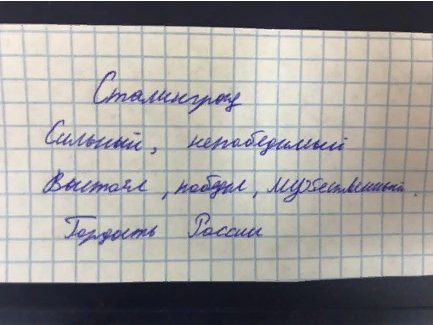 Сталинград
Сильный, непобедимый
Выстоял, победил, мужественный.
Гордость России